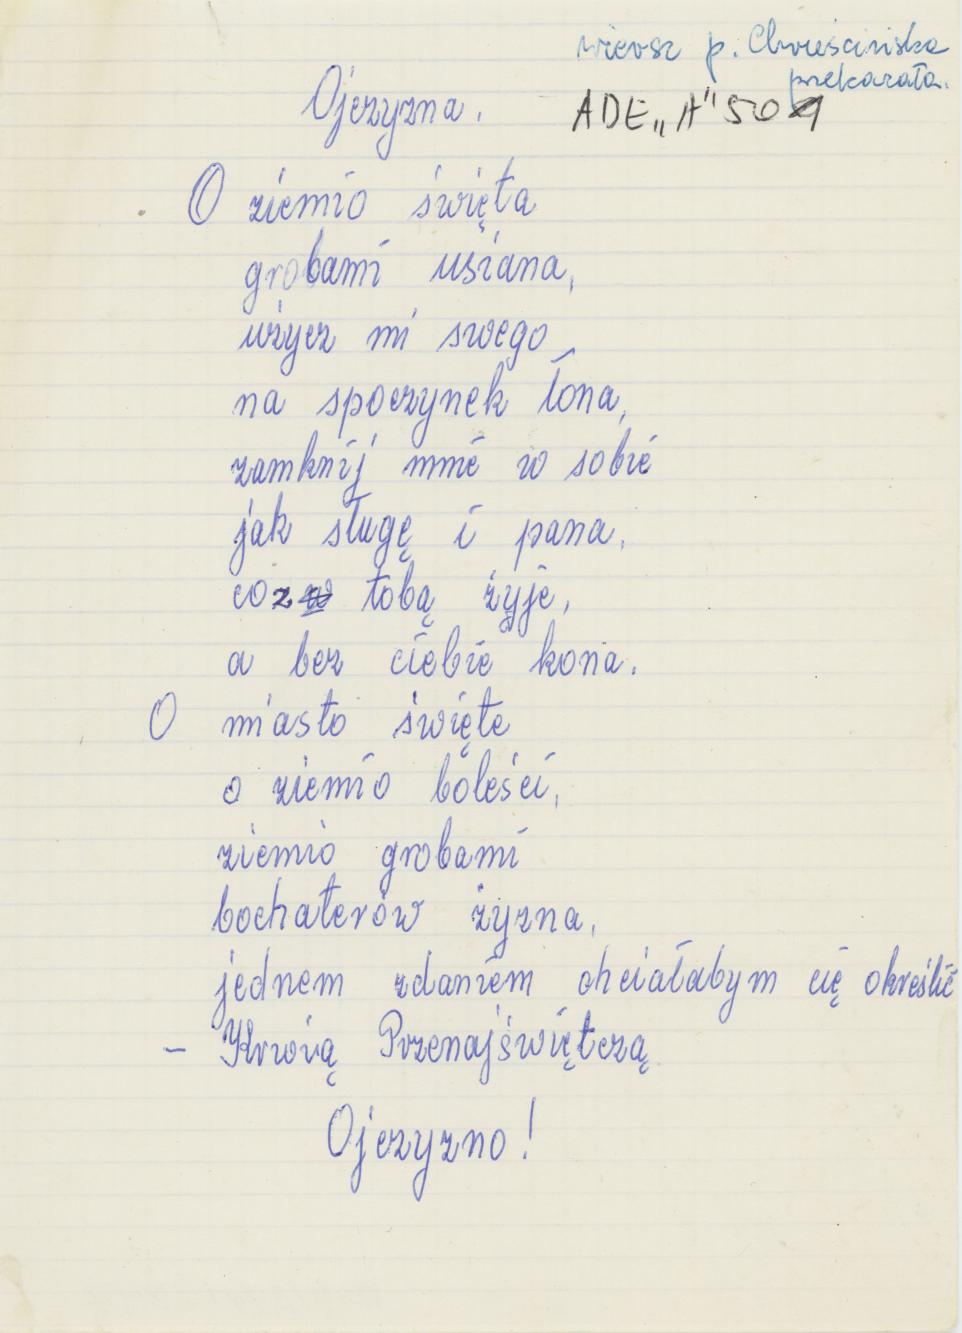 wiersz p. Chruścińska
przekazała.
ADE „A" 501
Ojczyzna.
O ziemio święta
grobami usiana,
użycz mi swego
na spoczynek łona,
zamknij mnie w sobie
jak sługę i pana,
co z tobą żyje,
a bez ciebie kona.
O miasto święte
o ziemio boleści,
ziemio grobami
bochaterów żyzna,
jednem zdaniem chciałabym cię określić
– Krwią Przenajświętczą
Ojczyzno!